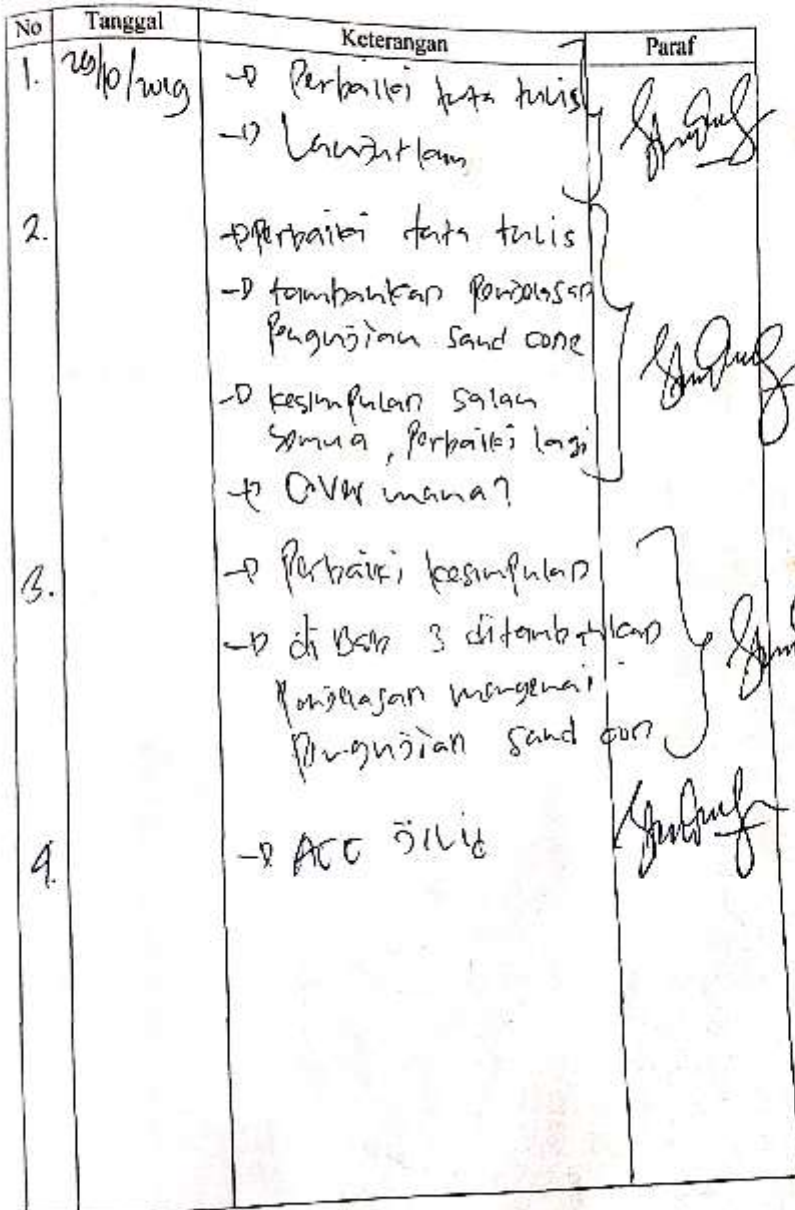 No Tanggal Keterangan Paraf
1. 29/10/2019 → Perbaiki tata tulis
→ Lanjutkan
2. → Perbaiki tata tulis
→ tambahkan Penjelasan
Pengujian sand cone
→ kesimpulan salah
semua, Perbaiki lagi
→ Cover mana?
3. → Perbaiki kesimpulan
→ di Bab 3 ditambahkan
Penjelasan mengenai
Pengujian sand con
4. → ACC Jilid